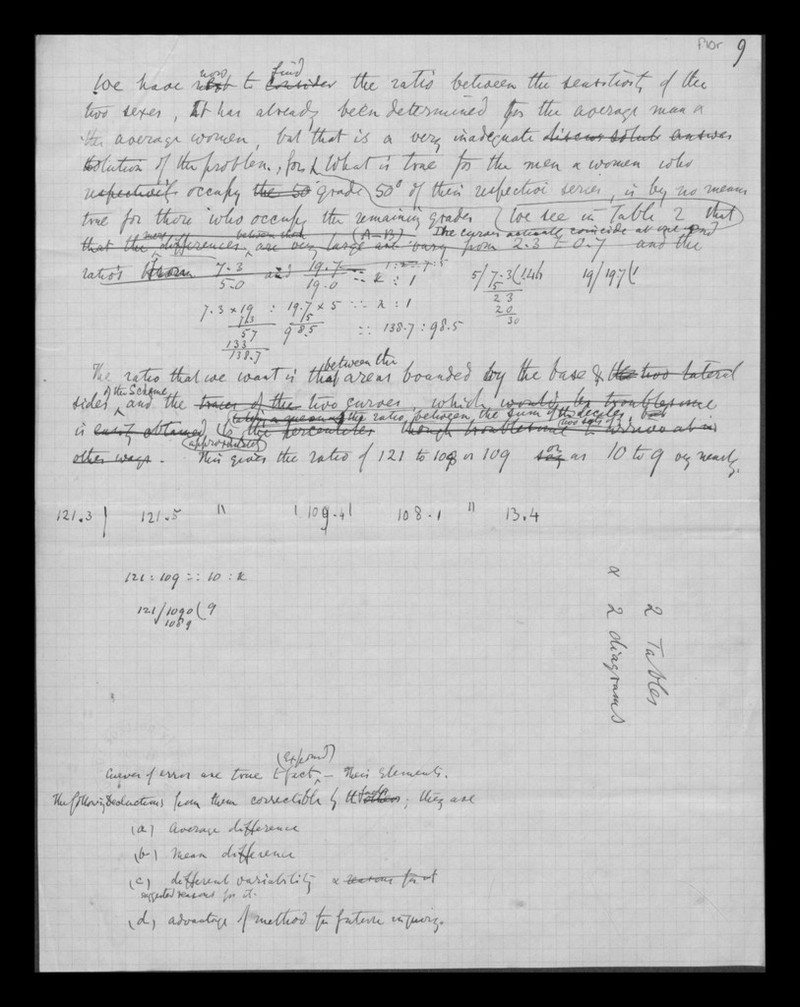 9
now find
We have next to consider the ratio between the sensitivity of the
two sexes, It has already been determined for the average man &
the average women, but that is a very inadequate answer
solution of the problem, for What is true for the men & women who
respective occupy the 50 grade 50° of their respective series, is by no means
true for those who occupy the remaining grades (We see in Table 2 that
between them (A-B) The curves actually coincide at one end
that the differences are very large vary from 2.3 to 0.7 and the
ratios from 7.3/5.0 and 19.7/19.0 :: x : 1
5/7.3(1.46 19/19.7(1
5
23
20
30
7.3 x 19 : 19.7 x 5 :: x : 1
7.3 5
57 98.5 :: 138.7 : 98.5
133
138.7
between the
The ratio that we want is that areas bounded by the base & the two lateral
of the Scheme
sides and the traces of the two curves which would be troublesome
the ratio between the sum of the deciles
is easily obtained the percentiles though troublesome
(approximately) two sets of
other ways. This gives the ratio of 121 to 108 or 109 or as 10 to 9 very nearly.
121.3 | 121.5 " | 109.4 | 108.1 " 13.4
121 : 109 :: 10 : x
121/1090(9
1089
2 Tables
& 2 diagrams
(expound)
Curves of error are true to fact – Their Elements.
The following Deductions from them correctible by; they are
(a) average difference
(b) mean difference
(c) different variability & reasons for it
suggested reasons for it.
(d) advantage of method for future inquiry.